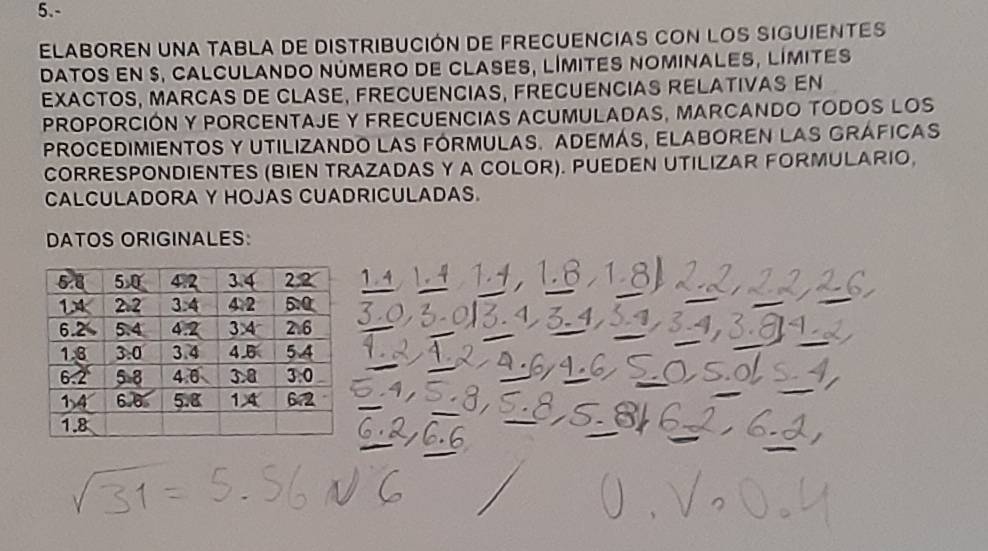 5.-
ELABOREN UNA TABLA DE DISTRIBUCIÓN DE FRECUENCIAS CON LOS SIGUIENTES
DATOS EN $, CALCULANDO NÚMERO DE CLASES, LÍMITES NOMINALES, LÍMITES
EXACTOS, MARCAS DE CLASE, FRECUENCIAS, FRECUENCIAS RELATIVAS EN
PROPORCIÓN Y PORCENTAJE Y FRECUENCIAS ACUMULADAS, MARCANDO TODOS LOS
PROCEDIMIENTOS Y UTILIZANDO LAS FÓRMULAS. ADEMÁS, ELABOREN LAS GRÁFICAS
CORRESPONDIENTES (BIEN TRAZADAS Y A COLOR). PUEDEN UTILIZAR FORMULARIO,
CALCULADORA Y HOJAS CUADRICULADAS.
DATOS ORIGINALES:
5.8 5.0 4.2 3.4 2.2
1.4 2.2 3.4 4.2 5.0
6.2 5.4 4.2 3.4 2.6
1.8 3.0 3.4 4.6 5.4
6.2 5.8 4.6 3.8 3.0
1.4 6.6 5.8 1.4 6.2
1.8
1.4, 1.4, 1.4, 1.8, 1.8) 2.2, 2.2, 2.6,
3.0, 3.0) 3.4, 3.4, 3.4, 3.4, 3.8) 4.2,
4.2, 4.2, 4.6, 4.6, 5.0, 5.0) 5.4,
5.4, 5.8, 5.8, 5.8) 6.2, 6.2,
6.2, 6.6
√31 = 5.56 ≈ 6 / U.V = 0.4